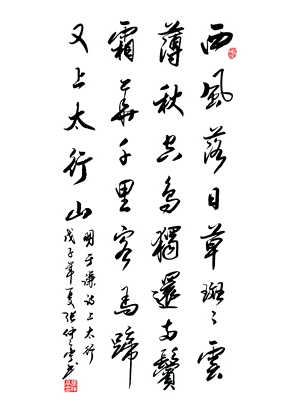 西風落日草斑〻雲
薄秋空鳥獨還两鬢
霜華千里客馬蹄
又上太行山
明于謙詩上太行
戊子年夏張仲书